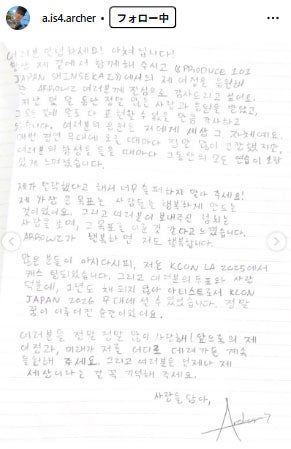 a.is4.archer
フォロー中
여러분 안녕하세요! 아처입니다!
항상 제 곁에서 함께해 주시고 《PRODUCE 101
JAPAN SHINSEKAI》에서의 제 여정을 응원해
준 ARROWZ 여러분께 진심으로 감사드리고 싶어요.
지난 몇 달 동안 정말 많은 사랑과 응원을 받았고,
그 말로 다 표현할 수 없을 만큼 감사하고
있습니다. 여러분의 응원은 저에게 세상 그 자체예요.
매번 공연 무대에 오를 때마다 정말 많이 긴장했지만,
여러분의 함성을 들을 때마다 그동안의 모든 연습이 보람
있게 느껴졌습니다.
제가 탈락했다고 해서 너무 슬퍼하지 말아 주세요!
제 가장 큰 목표는 사람들을 행복하게 만드는
것이었어요. 그리고 여러분이 보내주신
사랑을 보며, 그 목표를 이룬 것 같다고 느꼈습니다.
ARROWZ가 행복하면 저도 행복합니다.
많은 분들이 아시다시피, 저는 KCON LA 2025에서
캐스팅되었습니다. 그리고 여러분의 투표와 사랑
덕분에, 1년도 채 되지 않아 아티스트로서 KCON
JAPAN 2026 무대에 설 수 있었습니다. 정말
꿈이 이루어진 순간이었어요.
여러분을 정말 정말 많이 사랑해! 앞으로의 제
여정과, 미래가 저를 어디로 데려가든 계속
응원해 주세요. 그리고 여러분은 언제나 제
세상이라는 걸 꼭 기억해 주세요.
사랑을 담아,
Archer